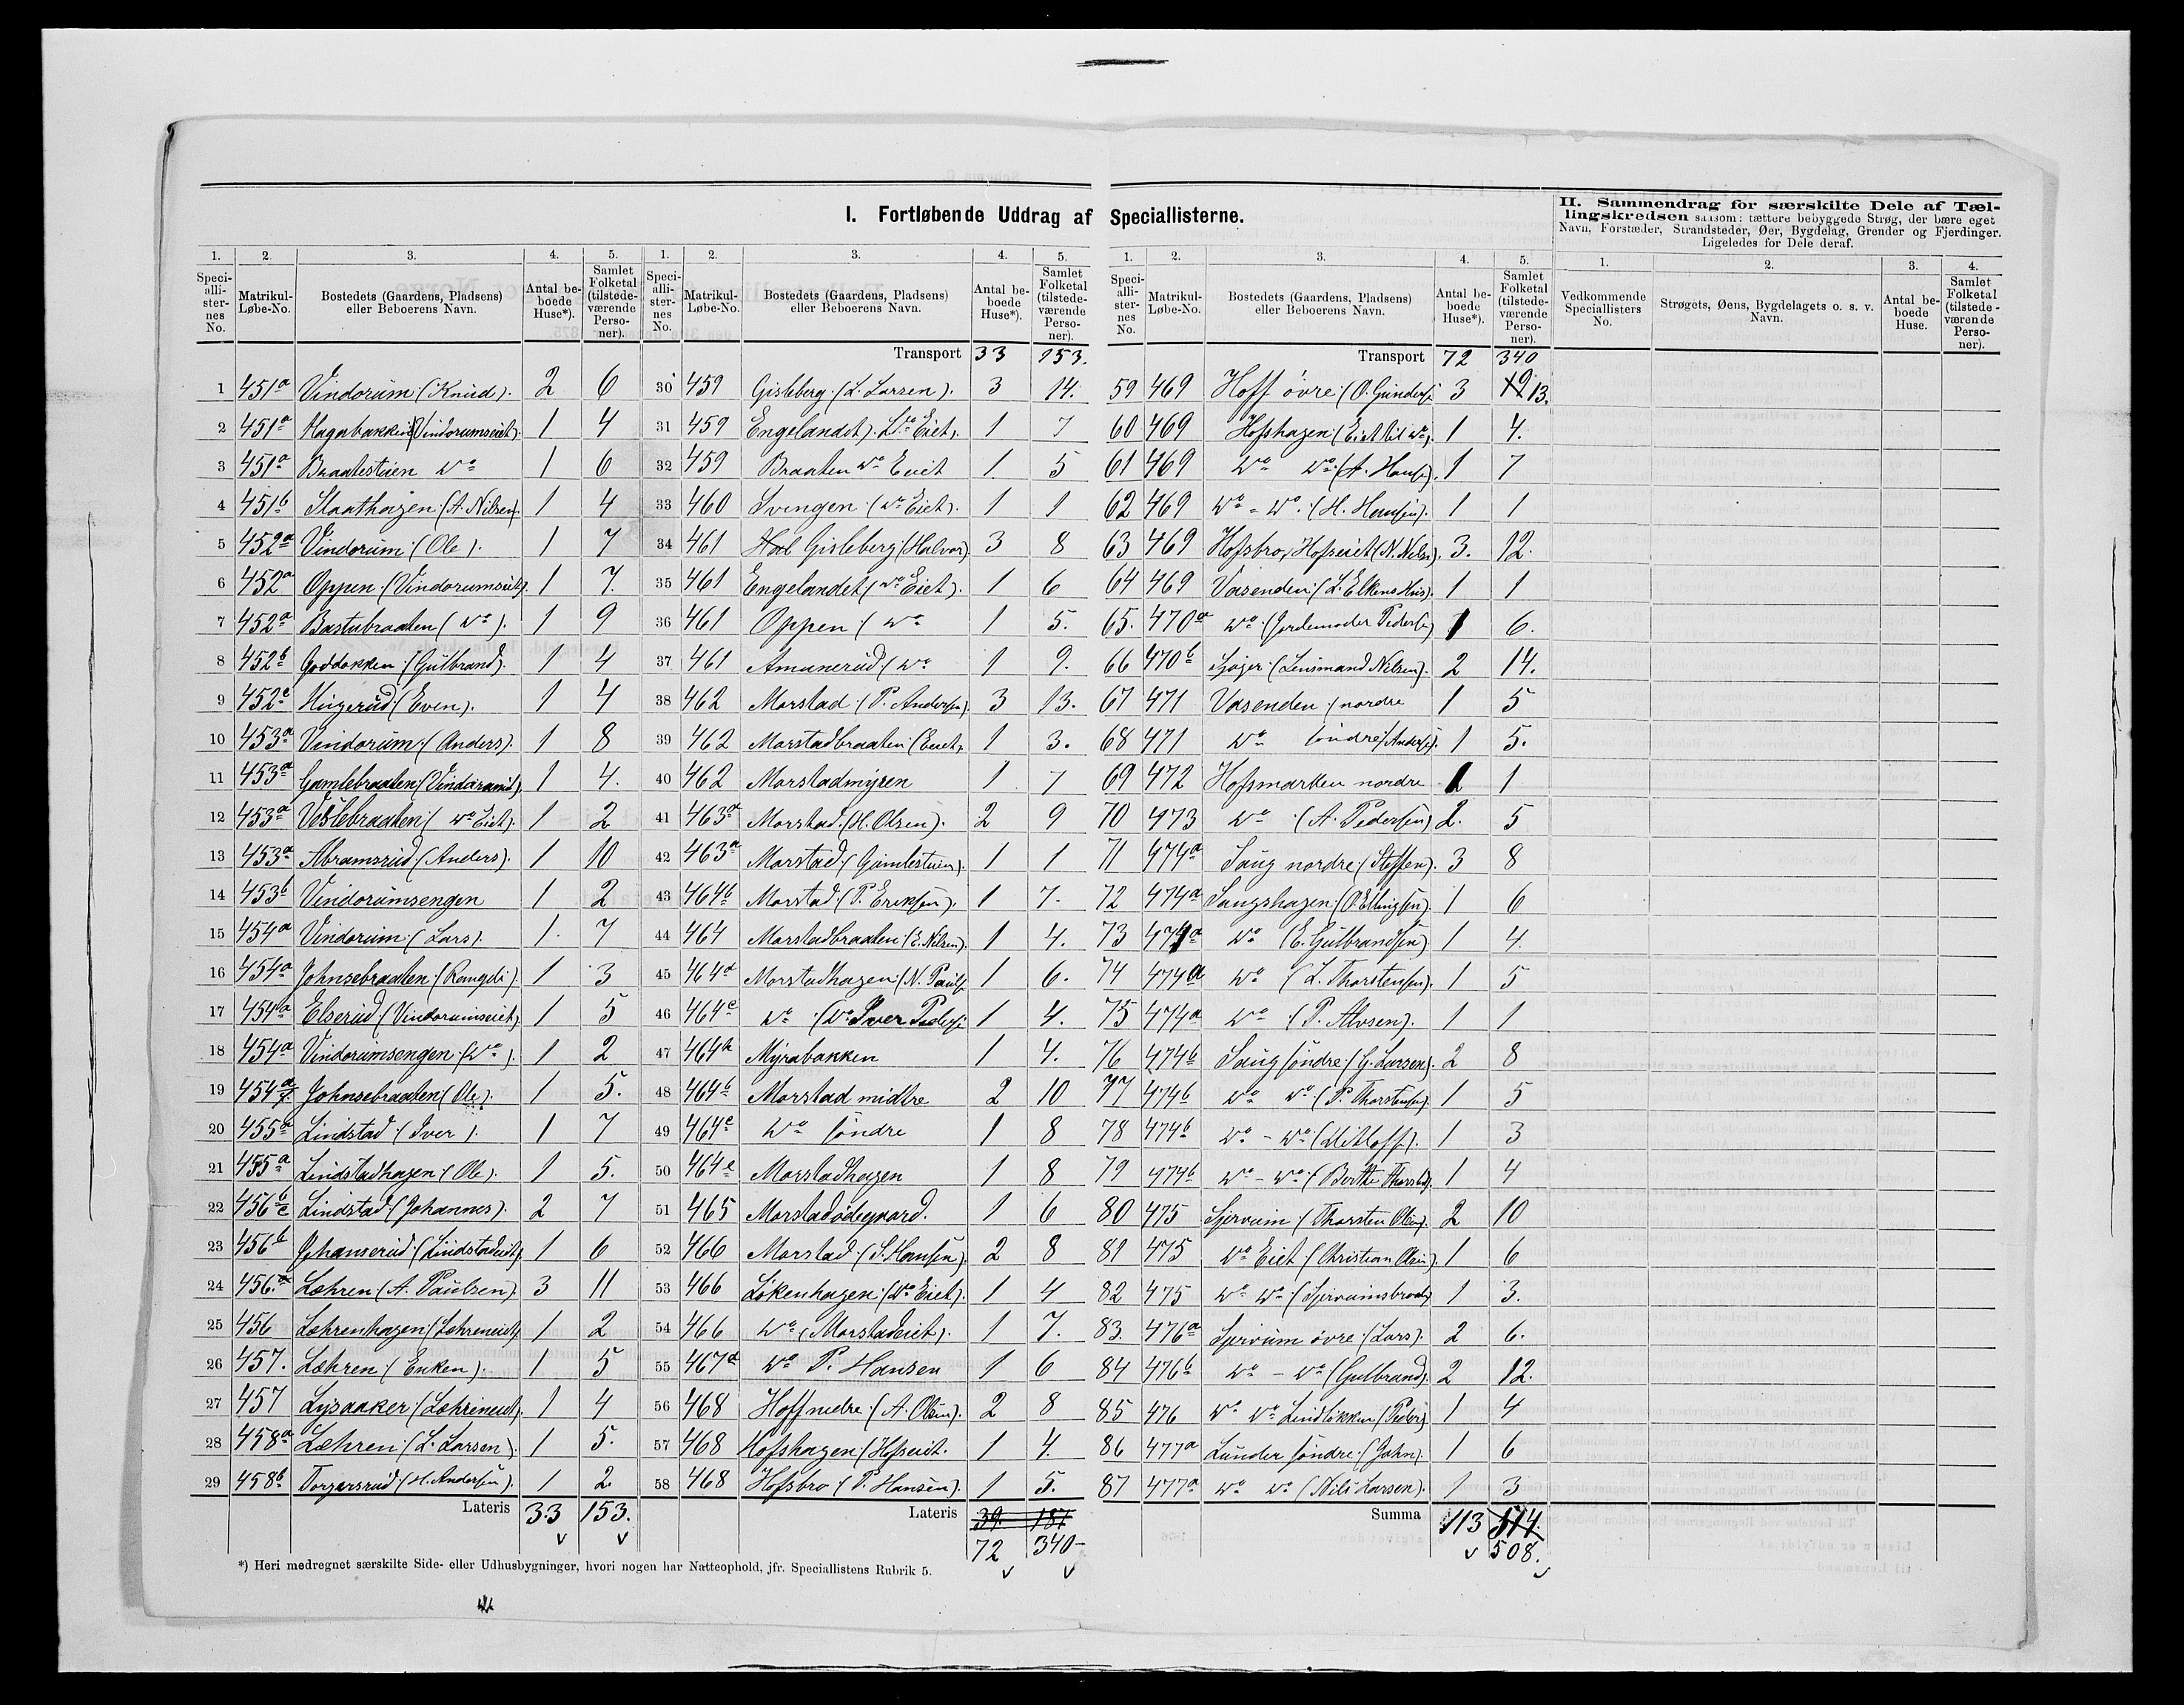 I. Fortløbende Uddrag af Speciallisterne.
II. Sammendrag for særskilte Dele af Tællingskredsen saasom: tættere bebyggede Strøg, der bære eget Navn, Forstæder, Strandsteder, Øer, Bygdelag, Grender og Fjerdinger. Ligeledes for Dele deraf.
1. 2. 3. 4. 5.
Speciallisternes No. Matrikul-Løbe-No. Bostedets (Gaardens, Pladsens) eller Beboerens Navn. Antal beboede Huse*). Samlet Folketal (tilstedeværende Personer).
1 451a Vindorum (Knud). 2 6
2 451a Hagabakken (Vindorumseiet). 1 4
3 451a Braatestuen Do 1 6
4 451b Slaathagen (A. Nilsen). 1 4
5 452a Vindorum (Ole). 1 7
6 452a Oppen (Vindorumseiet). 1 7.
7 452a Bastubraaten (Do). 1 9
8 452b Goddokken (Gulbrand). 1 4
9 452c Hugerud (Even). 1 4
10 453a Vindorum (Anders). 1 8
11 453a Gamlebraaten (Vindorumseiet). 1 4.
12 453a Veslebraaten (Do Eiet). 1 2
13 453a Abramsrud (Anders). 1 10
14 453b Vindorumsengen 1 2
15 454a Vindorum (Lars). 1 7
16 454a Johnsebraaten (Rangdi). 1 3
17 454a Elserud (Vindorumseiet) 1 5
18 454a Vindorumsengen (Do). 1 2
19 454a Johnsebraaten (Ole). 1 5.
20 455a Lindstad (Iver). 1 7
21 455a Lindstadhagen (Ole). 1 5.
22 456b c Lindstad (Johannes). 2 7
23 456b Johanserud (Lindstadeiet) 1 6
24 456a Læhren (A. Paulsen). 3 11
25 456 Læhrenhagen (Læhreneiet) 1 2
26 457. Læhren (Enken). 1 5
27 457 Lysaaker (Læhreneiet). 1 4
28 458a Læhren (L. Larsen). 1 5.
29 458b Torgersrud (H. Andersen). 1 2.
Lateris 33 153.
*) Heri medregnet særskilte Side- eller Udhusbygninger, hvori nogen har Natteophold, jfr. Speciallistens Rubrik 5.
1. 2. 3. 4. 5.
Speciallisternes No. Matrikul-Løbe-No. Bostedets (Gaardens, Pladsens) eller Beboerens Navn. Antal beboede Huse*). Samlet Folketal (tilstedeværende Personer).
Transport 33 153.
30 459 Gisleberg (L. Larsen). 3 14.
31 459 Engelandet Eiet). 1 7
32 459 Braaten Do Eiet 1 5
33 460 Svingen (Do Eiet). 1 1
34 461 Gisleberg (Halvor) 3 8
35 461 Engelandet (Do Eiet). 1 6
36 461 Oppen (Do 1 5.
37 461 Amunerud (Do 1 9.
38 462 Morstad (P. Andersen). 3 13.
39 462 Morstadbraaten (Eiet, 1 3.
40 462 Morstadmyren 1 7
41 463a Morstad (H. Olsen). 2 9
42 463a Morstad (Gamlestuen). 1 1
43 464b Morstad (P. Eriksen). 1 7.
44 464 Morstadbraaten (E. Nilsen). 1 4.
45 464a Morstadhagen (N. Pauls 1 6.
46 464c Do (Do Iver Peders 1 4.
47 464h Myrabakken 1 4.
48 464b Morstad midtre 2 10
49 464c Do søndre 1 8
50 464e Morstadhagen 1 8
51 465 Morstadødegaard. 1 6
52 466 Morstad (S. Hansen). 2 8
53 466 Løkenhagen (Do Eiet). 1 4
54 466 Do (Morstadeiet). 1 7.
55 467a Do P. Hansen 1 6
56 468 Hoff nedre (A. Olsen). 2 8
57 468 Hofshagen (Hofseiet. 1 4.
58 468 Hofsbro (P. Hansen). 1 5.
Lateris 39. 187
72 340
1. 2. 3. 4. 5.
Speciallisternes No. Matrikul-Løbe-No. Bostedets (Gaardens, Pladsens) eller Beboerens Navn. Antal beboede Huse*). Samlet Folketal (tilstedeværende Personer).
Transport 72 340
59 469 Hoff øvre (O. Gunders 3 13.
60 469 Hofshagen (Eiet til Do). 1 4.
61 469 Do Do (A. Hans). 1 7
62 469 Do - Do. (H. Hansen). 1 1
63 469 Hofsbro, Hofseiet (N. Nils). 3. 12.
64 469 Vasenden (L. Elkens Hus) 1 1
65. 470a Do (Jordemoder Peders) 1 6.
66 470b (Lensmand Nilsen). 2 14.
67 471 Vasenden (nordre 1 5
68 471 Do søndre (Anders). 1 5.
69 472 Hofsmarken nordre 1 1
70 473 Do (A. Pedersen) 2. 5
71 474a Saug nordre (Steffen). 3 8
72 474a Saugshagen (O. Ellingsen). 1 6
73 474a Do (E. Gulbrandsen) 1 4.
74 474a Do (L. Thorstensen). 1 5
75 474a Do (P. Alosen). 1 1
76 474b Saug søndre (G. Larsen). 2 8
77 474b Do Do (P. Thorstensen). 1 5
78 474b Do - Do 1 3
79 474b Do - Do (Berthe Thorsted). 1 4
80 475 Sjervum (Thorsten Olsen). 2 10
81 475 Do Eiet (Christian Olsen). 1 6
82 475 Do Do (Sjervumsbraat) 1 3.
83. 476a Sjervum øvre (Lars). 2 6.
84 476b Do - Do (Gulbrand). 2 12.
85 476 Do Do Lindløkken (Peder) 1 4
86 477a Lunder søndre (John). 1 6
87 477a Do Do (Nils Larsen). 1 3
Summa 113 514.
508.
1. 2. 3. 4.
Vedkommende Speciallisters No. Strøgets, Øens, Bygdelagets o. s. v. Navn. Antal beboede Huse. Samlet Folketal (tilstedeværende Personer).